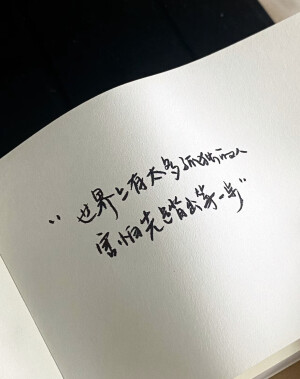 “世界上有太多孤独的人
害怕先踏出第一步”